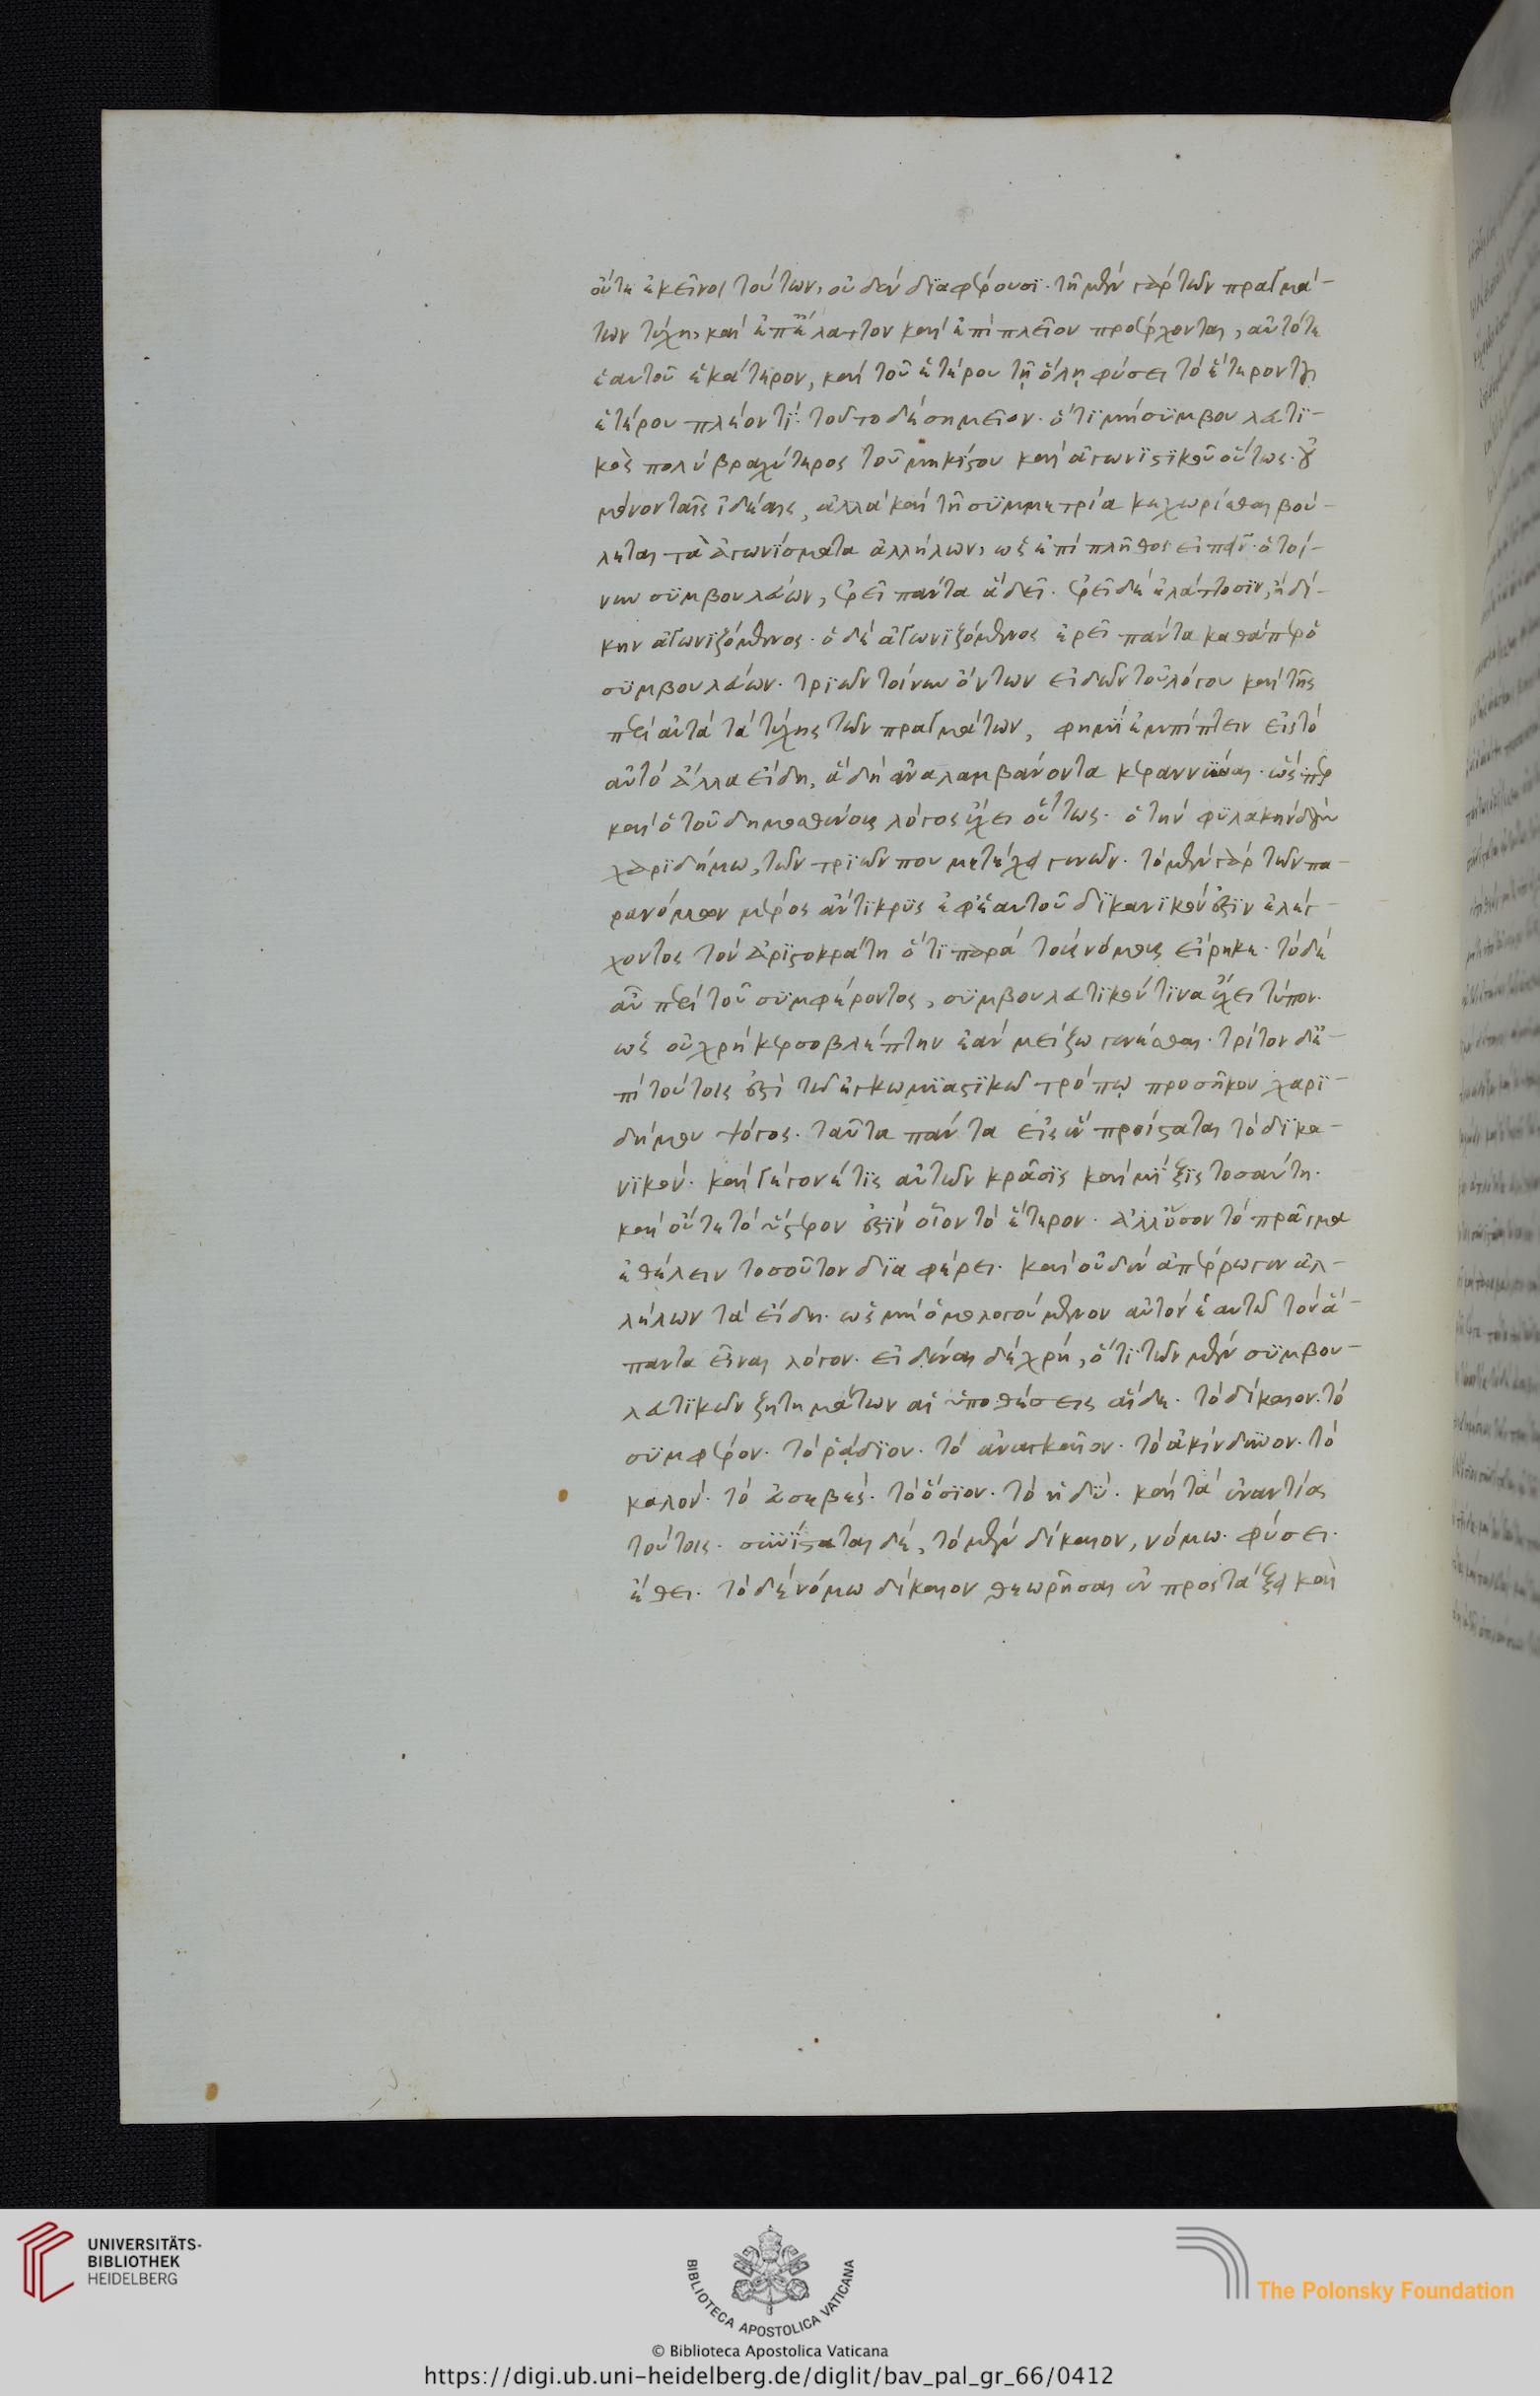 οὔτε ἐκεῖνος τούτων, οὐδὲν διαφέρουσι· τῇ μὲν γὰρ τῶν πραγμά-
των τύχῃ, καὶ ἐπ' ἔλαττον καὶ ἐπὶ πλεῖον προέρχονται, αὐτό τε
ἑαυτοῦ ἑκάτερον, καὶ τοῦ ἑτέρου τῇ ὅλῃ φύσει τὸ ἕτερον τοῦ
ἑτέρου πλέον τί· τοῦτο δὲ σημεῖον· ὅτι μὴ συμβουλευτι-
κὸς πολὺ βραχύτερος τοῦ μηκίστου καὶ ἀγωνιστικοῦ οὕτως· οὐ
μόνον ταῖς ἰδέαις, ἀλλὰ καὶ τῇ συμμετρία κεχωρίσθαι βού-
λεται τὰ ἀγωνίσματα ἀλλήλων, ὡς ἐπὶ πλῆθος εἰπεῖν· ὁ τοί-
νυν συμβουλεύων, ἐρεῖ πάντα ἃ δεῖ· ἐρεῖ δὲ ἐλάττοσιν, ἢ δί-
κην ἀγωνιζόμενος· ὁ δὲ ἀγωνιζόμενος ἐρεῖ πάντα καθάπερ ὁ
συμβουλεύων· τριῶν τοίνυν ὄντων εἰδῶν τοῦ λόγου καὶ τῆς
περὶ αὐτὰ τὰ τύχης τῶν πραγμάτων, φημὶ ἐμπίπτειν εἰς τὸ
αὐτὸ ἄλλα εἴδη, ἃ δὴ ἀναλαμβάνοντα κεραννύναι· ὥσπερ
καὶ ὁ τοῦ δημοσθένους λόγος ἔχει οὕτως· ὁ τὴν φυλακὴν διδοὺς
χαριδήμω, τῶν τριῶν που μετέχει γενῶν· τὸ μὲν γὰρ τῶν πα-
ρανόμων μέρος ἄντικρυς ἐφ' ἑαυτοῦ δικανικόν ἐστιν ἐλέγ-
χοντος τὸν ἀριστοκράτη ὅτι παρὰ τοὺς νόμους εἴρηκε· τὸ δὲ
αὖ περὶ τοῦ συμφέροντος, συμβουλευτικόν τινα ἔχει τύπον·
ὡς οὐ χρὴ κερσοβλέπτην ἐὰν μείζω γενέσθαι· τρίτον δ' ἐ-
πὶ τούτοις ἐστὶ τῶ ἐγκωμιαστικῶ τρόπῳ προσῆκον χαρι-
δήμου ψόγος· ταῦτα πάντα εἰς ἓν προίσταται τὸ δικα-
νικόν· καὶ γέγονέ τις αὐτῶν κρᾶσις καὶ μίξις τοσαύτη·
καὶ οὔτε τὸ ὕστερον ἐστὶν οἷον τὸ ἕτερον· ἀλλ' ὅσον τὸ πρᾶγμα
ἐθέλειν τοσοῦτον διαφέρει· καὶ οὐδὲν ἀπέρρωγεν ἀλ-
λήλων τὰ εἴδη· ὡς μὴ ὁμολογούμενον αὐτὸν ἑαυτῶ τὸν ἅ-
παντα εἶναι λόγον· εἰδέναι δὲ χρὴ, ὅτι τῶν μὲν συμβου-
λευτικῶν ζητημάτων αἱ ὑποθέσεις αἵδε· τὸ δίκαιον· τὸ
συμφέρον· τὸ ῥᾴδιον· τὸ ἀναγκαῖον· τὸ ἀκίνδυνον· τὸ
καλόν· τὸ ἀσεβές· τὸ ὅσιον· τὸ ἡδύ· καὶ τὰ ἐναντία
τούτοις· συνίσταται δὲ, τὸ μὲν δίκαιον, νόμω· φύσει·
ἔθει· τὸ δὲ νόμω δίκαιον θεωρῆσαι ἐν προστάξει καὶ
UNIVERSITÄTS-
BIBLIOTHEK
HEIDELBERG
BIBLIOTECA APOSTOLICA VATICANA
The Polonsky Foundation
© Biblioteca Apostolica Vaticana
https://digi.ub.uni-heidelberg.de/diglit/bav_pal_gr_66/0412